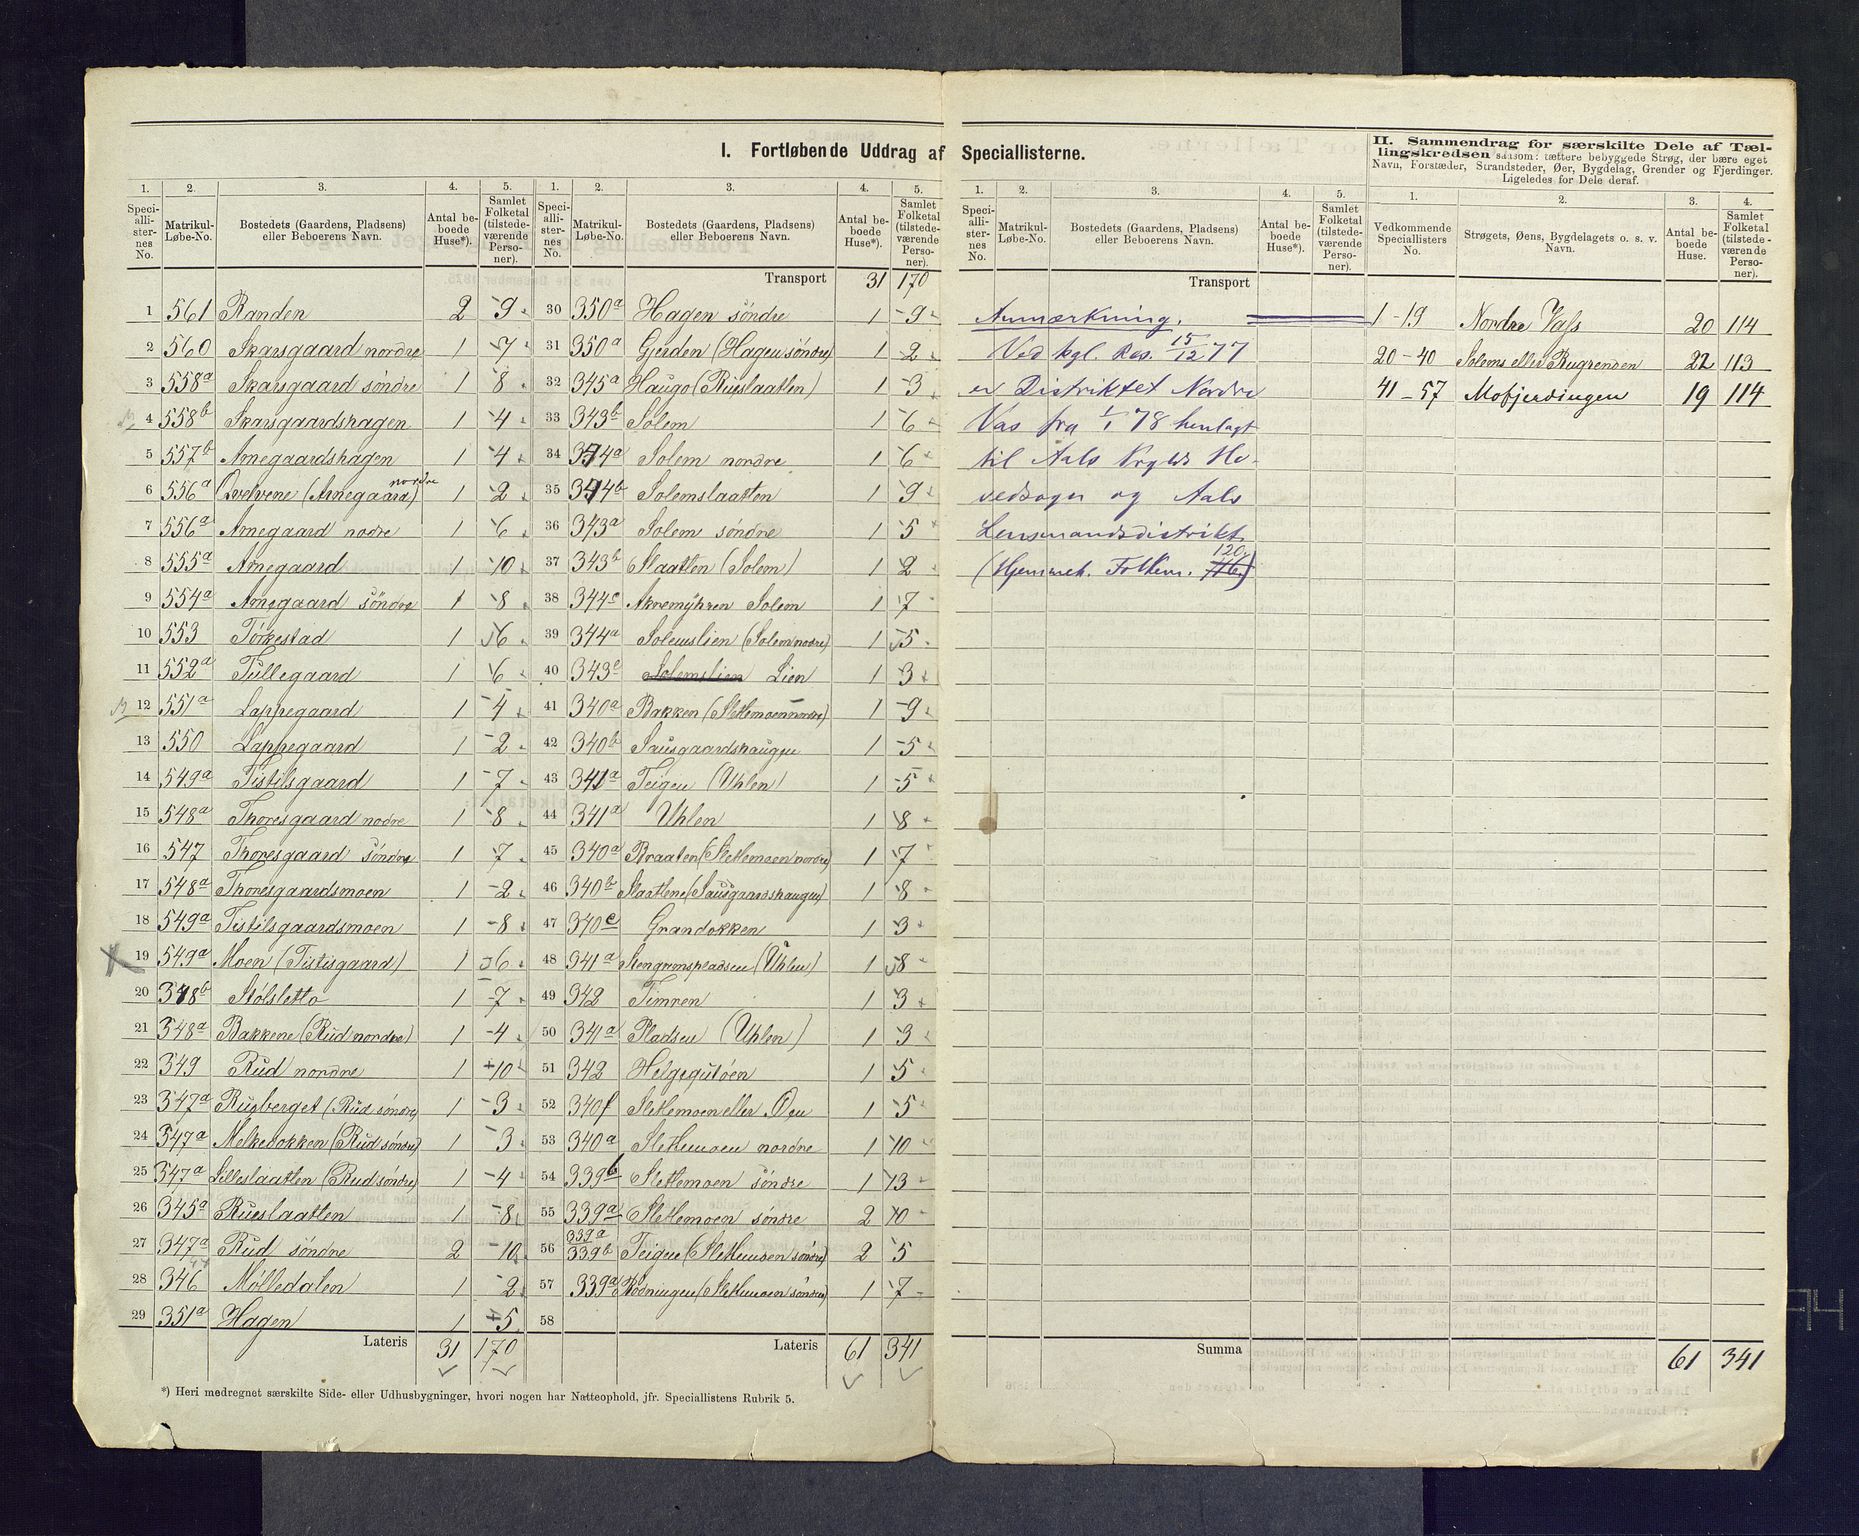 I. Fortløbende Uddrag af Speciallisterne.
II. Sammendrag for særskilte Dele af Tællingskredsen saasom: tættere bebyggede Strøg, der bære eget
Navn, Forstæder, Strandsteder, Øer, Bygdelag, Grender og Fjerdinger.
Ligeledes for Dele deraf.
1. 2. 3. 4. 5.
Speciallisternes No. Matrikul-Løbe-No. Bostedets (Gaardens, Pladsens) eller Beboerens Navn. Antal beboede Huse*). Samlet Folketal (tilstedeværende Personer).
1 561 Randen 2 9
2 560 Skarsgaard nordre 1 7
3 558a Skarsgaard søndre 1 8
4 558b Skarsgaardshagen 1 4
5 557b Arnegaardshagen 1 4
6 556a Qvelvene (Arnegaard nordre) 1 2
7 556a Arnegaard nodre 1 6
8 555a Arnegaard 1 10
9 554a Arnegaard söndre 1 8
10 553 Törkestad 1 6
11 552a Tüllegaard 1 6
12 551a Lappegaard 1 4
13 550 Lappegaard 1 2
14 549a Tistilsgaard 1 7
15 548a Thoresgaard nodre 1 8
16 547 Thoresgaard söndre 1 7
17 548a Thoresgaardsmoen 1 2
18 549a Tistilsgaardsmoen 1 8
19 549a Moen (Tistisgaard) 1 6
20 348b Stölsletto 1 7
21 348a Bakkene (Rud nordre) 1 4
22 349 Rud nordre 1 10
23 347a Rusberget (Rud söndre) 1 3
24 347a Melkedokken (Rud söndre) 1 3
25 347a Lilleslaatten (Rud söndre) 1 4
26 345a Rueslaatten 1 8
27 347a Rud söndre 2 10
28 346 Mölledalen 1 2
29 351a Hagen 1 5
Lateris 31 170
1. 2. 3. 4. 5.
Speciallisternes No. Matrikul-Løbe-No. Bostedets (Gaardens, Pladsens) eller Beboerens Navn. Antal beboede Huse*). Samlet Folketal (tilstedeværende Personer).
Transport 31 170
30 350a Hagen söndre 1 9
31 350a Gjerden (Hagen söndre) 1 2
32 345a Haugo (Rueslaatten) 1 3
33 343b Solem 1 6
34 344a Solem nordre 1 6
35 344b Solemslaatten 1 9
36 343a Solem söndre 1 5
37 343b Slaatten (Solem) 1 2
38 344c Aknemÿhren Solem 1 7
39 344a Solemslien (Solem nodre) 1 5
40 343c Solemslien Lien 1 3
41 340a Bakken (Slettemoen nordre) 1 9
42 340b Sausgaardshaugen 1 5
43 341a Teigen (Uhlen) 1 5
44 341a Uhlen 1 8
45 340a Braaten (Slettemoen nordre) 1 7
46 340b Slaattene (Sausgaardshaugen) 1 8
47 340c Grandokken 1 3
48 341a (Uhlen) 1 8
49 342 Timren 1 3
50 341a Pladsen (Uhlen) 1 3
51 342 Helgegutöen 1 5
52 340f Slettemoen eller Öen 1 5
53 340a Slettemoen nordre 1 10
54 339b Slettemoen söndre 1 13
55 339a Slettemoen söndre 2 10
56 339a 339b Teigen (Slettemoen söndre) 2 5
57 339a Hödningen (Slettemoen söndre) 1 7
58
Lateris 61 341
*) Heri medregnet særskilte Side- eller Udhusbygninger, hvori nogen har Natteophold, jfr. Speciallistens Rubrik 5.
1. 2. 3. 4. 5.
Speciallisternes No. Matrikul-Løbe-No. Bostedets (Gaardens, Pladsens) eller Beboerens Navn. Antal beboede Huse*). Samlet Folketal (tilstedeværende Personer).
Transport
Anmærkning.
Ved kgl. Res. 15/12 77
er Distriktet Nordre
Vas fra 1/1 78 henlagt
til Aals Prgldr He-
vedsogn og Aals
Lensmandsdistrikt.
(Hjemmeh. Folkem. 120)
Summa
1. 2. 3. 4.
Vedkommende Speciallisters No. Strøgets, Øens, Bygdelagets o. s. v. Navn. Antal beboede Huse. Samlet Folketal (tilstedeværende Personer).
1-19 Nordre Vass 20 114
20-40 Solems eller Rugrenden 22 113
41-57 Mofjerdingen 19 114
61 341